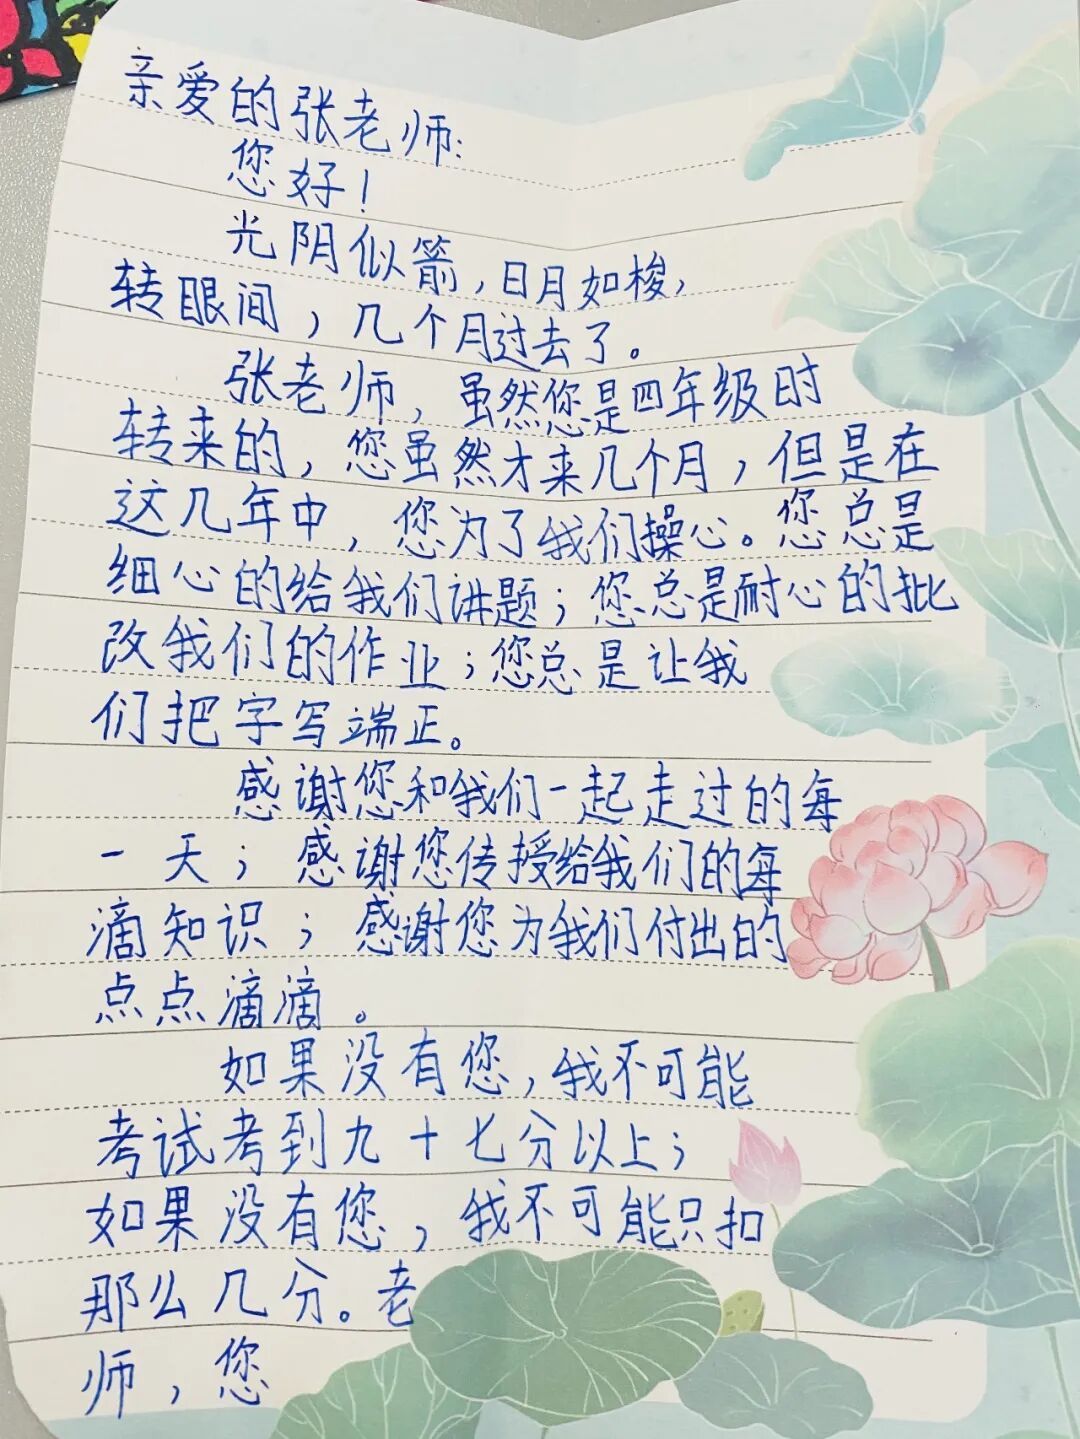 亲爱的张老师:
您好!
光阴似箭,日月如梭,
转眼间,几个月过去了。
张老师,虽然您是四年级时
转来的,您虽然才来几个月,但是在
这几年中,您为了我们操心。您总是
细心的给我们讲题;您总是耐心的批
改我们的作业;您总是让我
们把字写端正。
感谢您和我们一起走过的每
一天;感谢您传授给我们的每
滴知识;感谢您为我们付出的
点点滴滴。
如果没有您,我不可能
考试考到九十七分以上;
如果没有您,我不可能只扣
那么几分。老
师,您